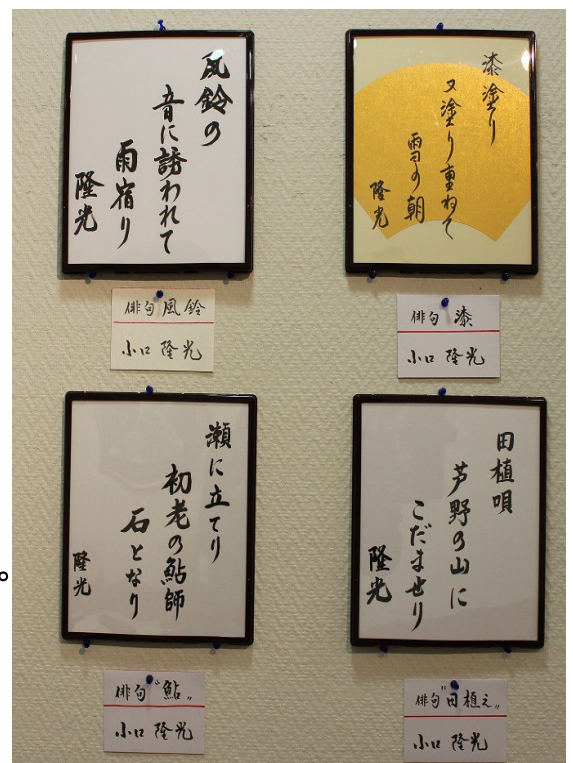 風鈴の
音に誘われて
雨宿り
隆光
俳句 風鈴
小口 隆光
漆塗り
又塗り重ねて
雪の朝
隆光
俳句 漆
小口 隆光
瀬に立てり
初老の鮎師
石となり
隆光
俳句 〝鮎〟
小口 隆光
田植唄
芦野の山に
こだませり
隆光
俳句 〝田植え〟
小口 隆光